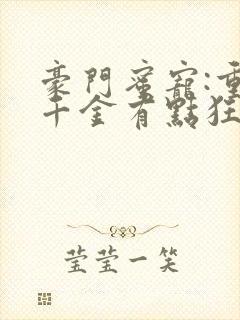 豪門蜜寵:重
千金有點狂
莹莹一笑